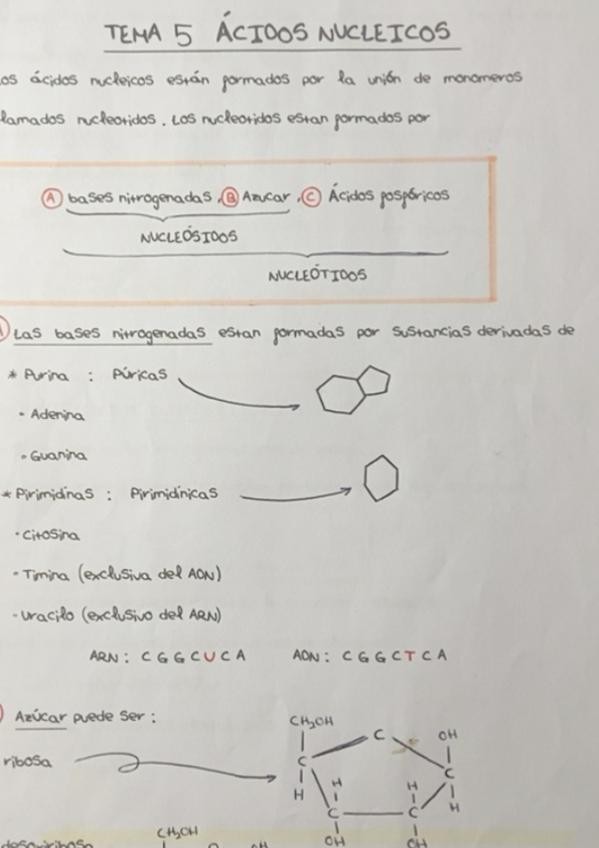 TEMA 5 ÁCIDOS NUCLEICOS
os ácidos nucleicos están formados por la unión de monomeros
lamados nucleotidos. Los nucleotidos estan formados por
Ⓐ bases nitrogenadas, Ⓑ Azucar, Ⓒ Ácidos fosfóricos
NUCLEÓSIDOS
NUCLEÓTIDOS
Las bases nitrogenadas estan formadas por sustancias derivadas de
* Purina : Púricas
- Adenina
- Guanina
* Pirimidinas : Pirimidínicas
- Citosina
- Timina (exclusiva del ADN)
- Uracilo (exclusivo del ARN)
ARN: C G G C U C A ADN: C G G C T C A
Azúcar puede ser:
CH₂OH
C OH
ribosa
C C
H H H H
C C
OH OH
desoxiribosa CH₂OH
O OH